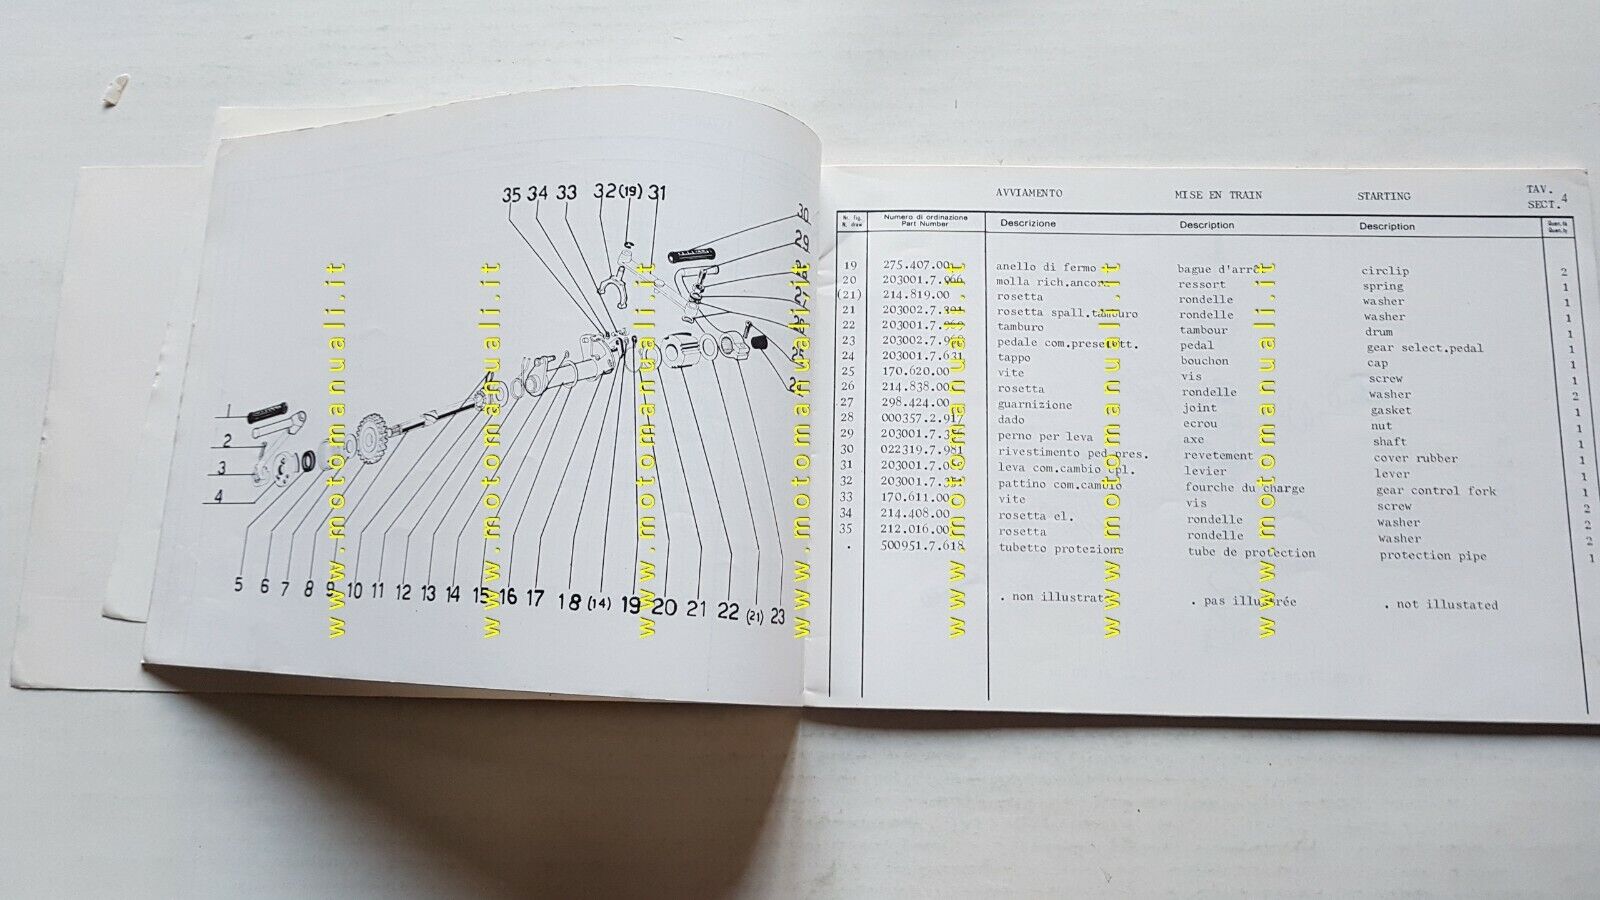 35 34 33 32 (19) 31
30
29
1
2
3
4
5 6 7 8 9 10 11 12 13 14 15 16 17 18 (14) 19 20 21 22 (21) 23
www.motomanuali.it
www.motomanuali.it
www.motomanuali.it
www.motomanuali.it
www.motomanuali.it
www.motomanuali.it
www.motomanuali.it
AVVIAMENTO MISE EN TRAIN STARTING TAV. 4
SECT.
Nr. fig. Numero di ordinazione Descrizione Description Description
N. draw Part Number
19 275.407.00 anello di fermo bague d'arrêt circlip 2
20 203001.7.966 molla rich.ancora ressort spring 1
(21) 214.819.00 rosetta rondelle washer 1
21 203002.7. rosetta spall.tamburo rondelle washer 1
22 203001.7. tamburo tambour drum 1
23 203002.7. pedale com. pedal gear select.pedal 1
24 203001.7.631 tappo bouchon cap 1
25 170.620.00 vite vis screw 1
26 214.838.00 rosetta rondelle washer 2
27 298.424.00 guarnizione joint gasket 1
28 000357.2.917 dado ecrou nut 1
29 203001.7. perno per leva axe shaft 1
30 022319.7.981 rivestimento ped.pres. revetement cover rubber 1
31 203001.7. leva com.cambio cpl. levier lever 1
32 203001.7. pattino com.cambio fourche du charge gear control fork 1
33 170.611.00 vite vis screw 2
34 214.408.00 rosetta el. rondelle washer 2
35 212.016.00 rosetta rondelle washer 2
. 500951.7.618 tubetto protezione tube de protection protection pipe 1
. non illustrato . pas illustrée . not illustated